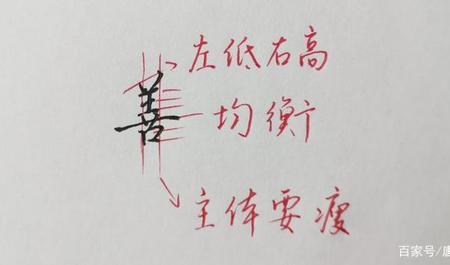 左低右高
善
均衡
主体要瘦
百家号/唐